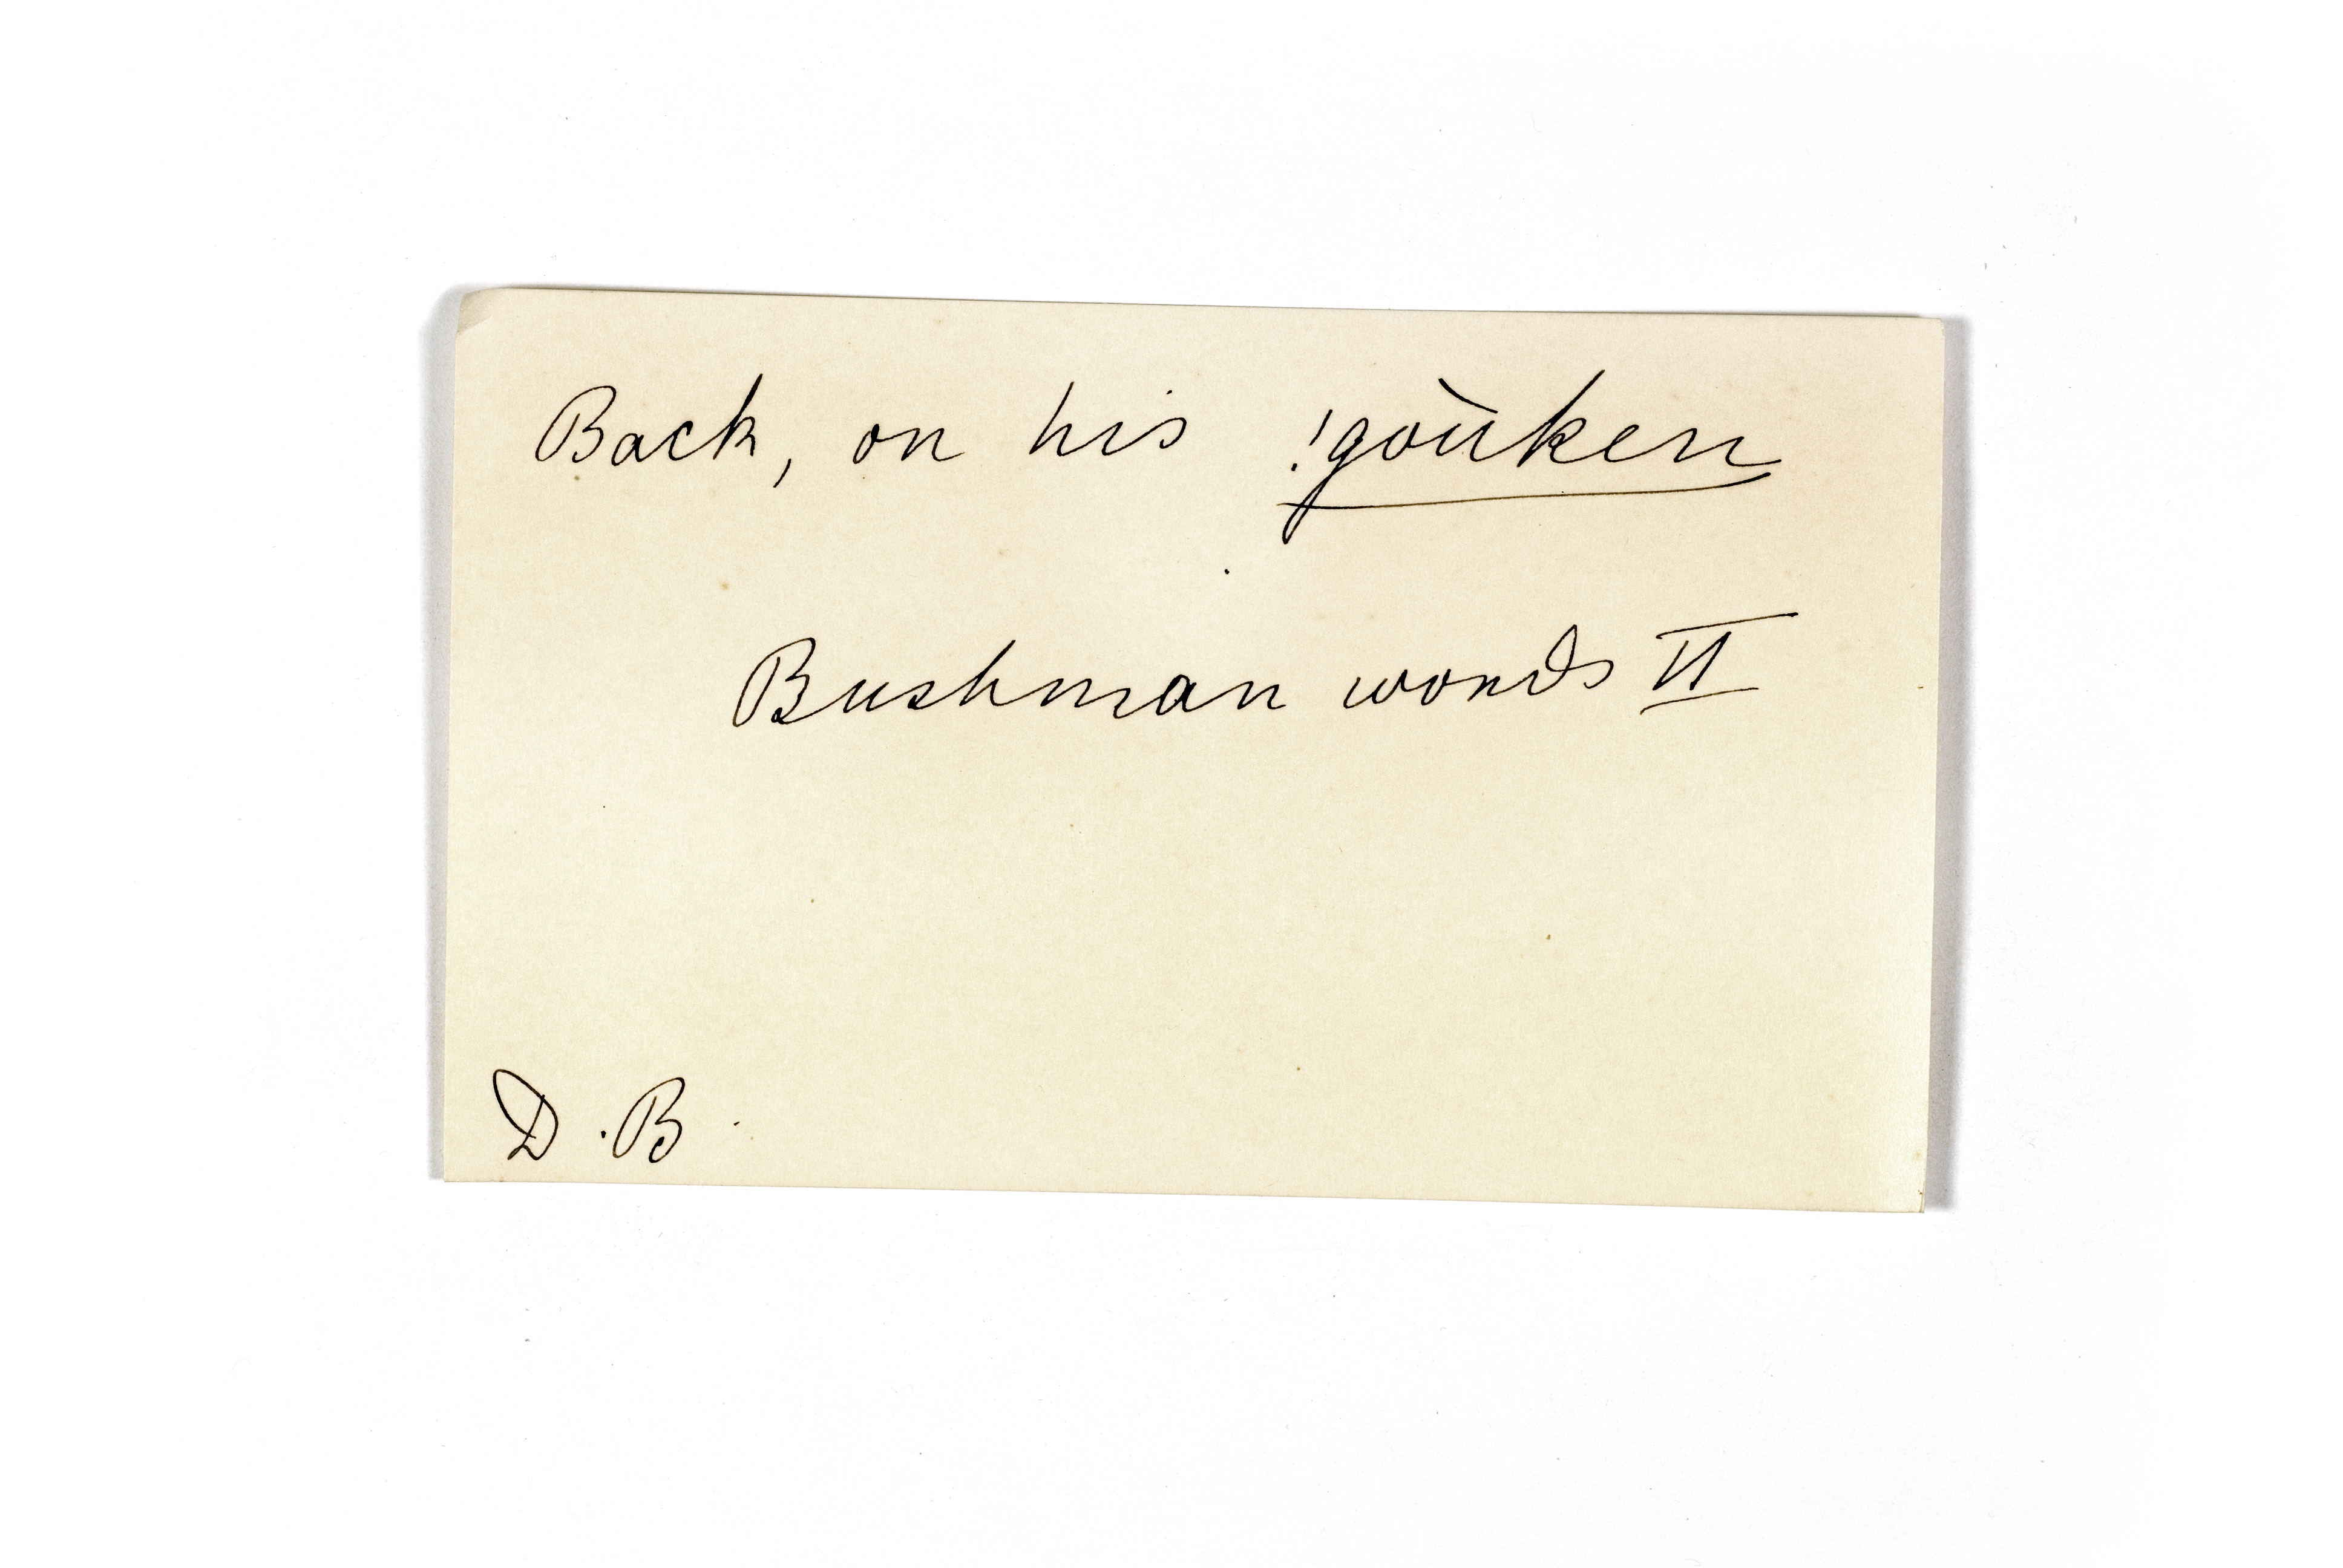 Back, on his !goùken
Bushman words II
D.B.